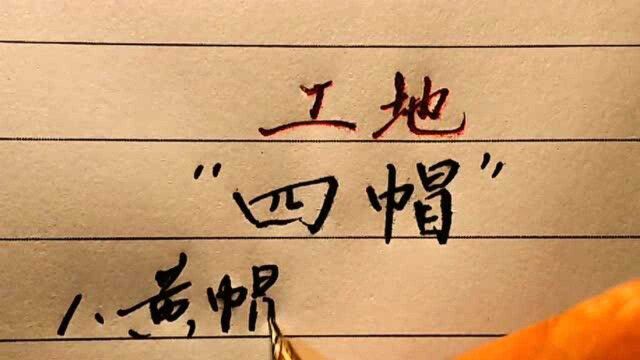 工地
“四帽”
1、黄帽